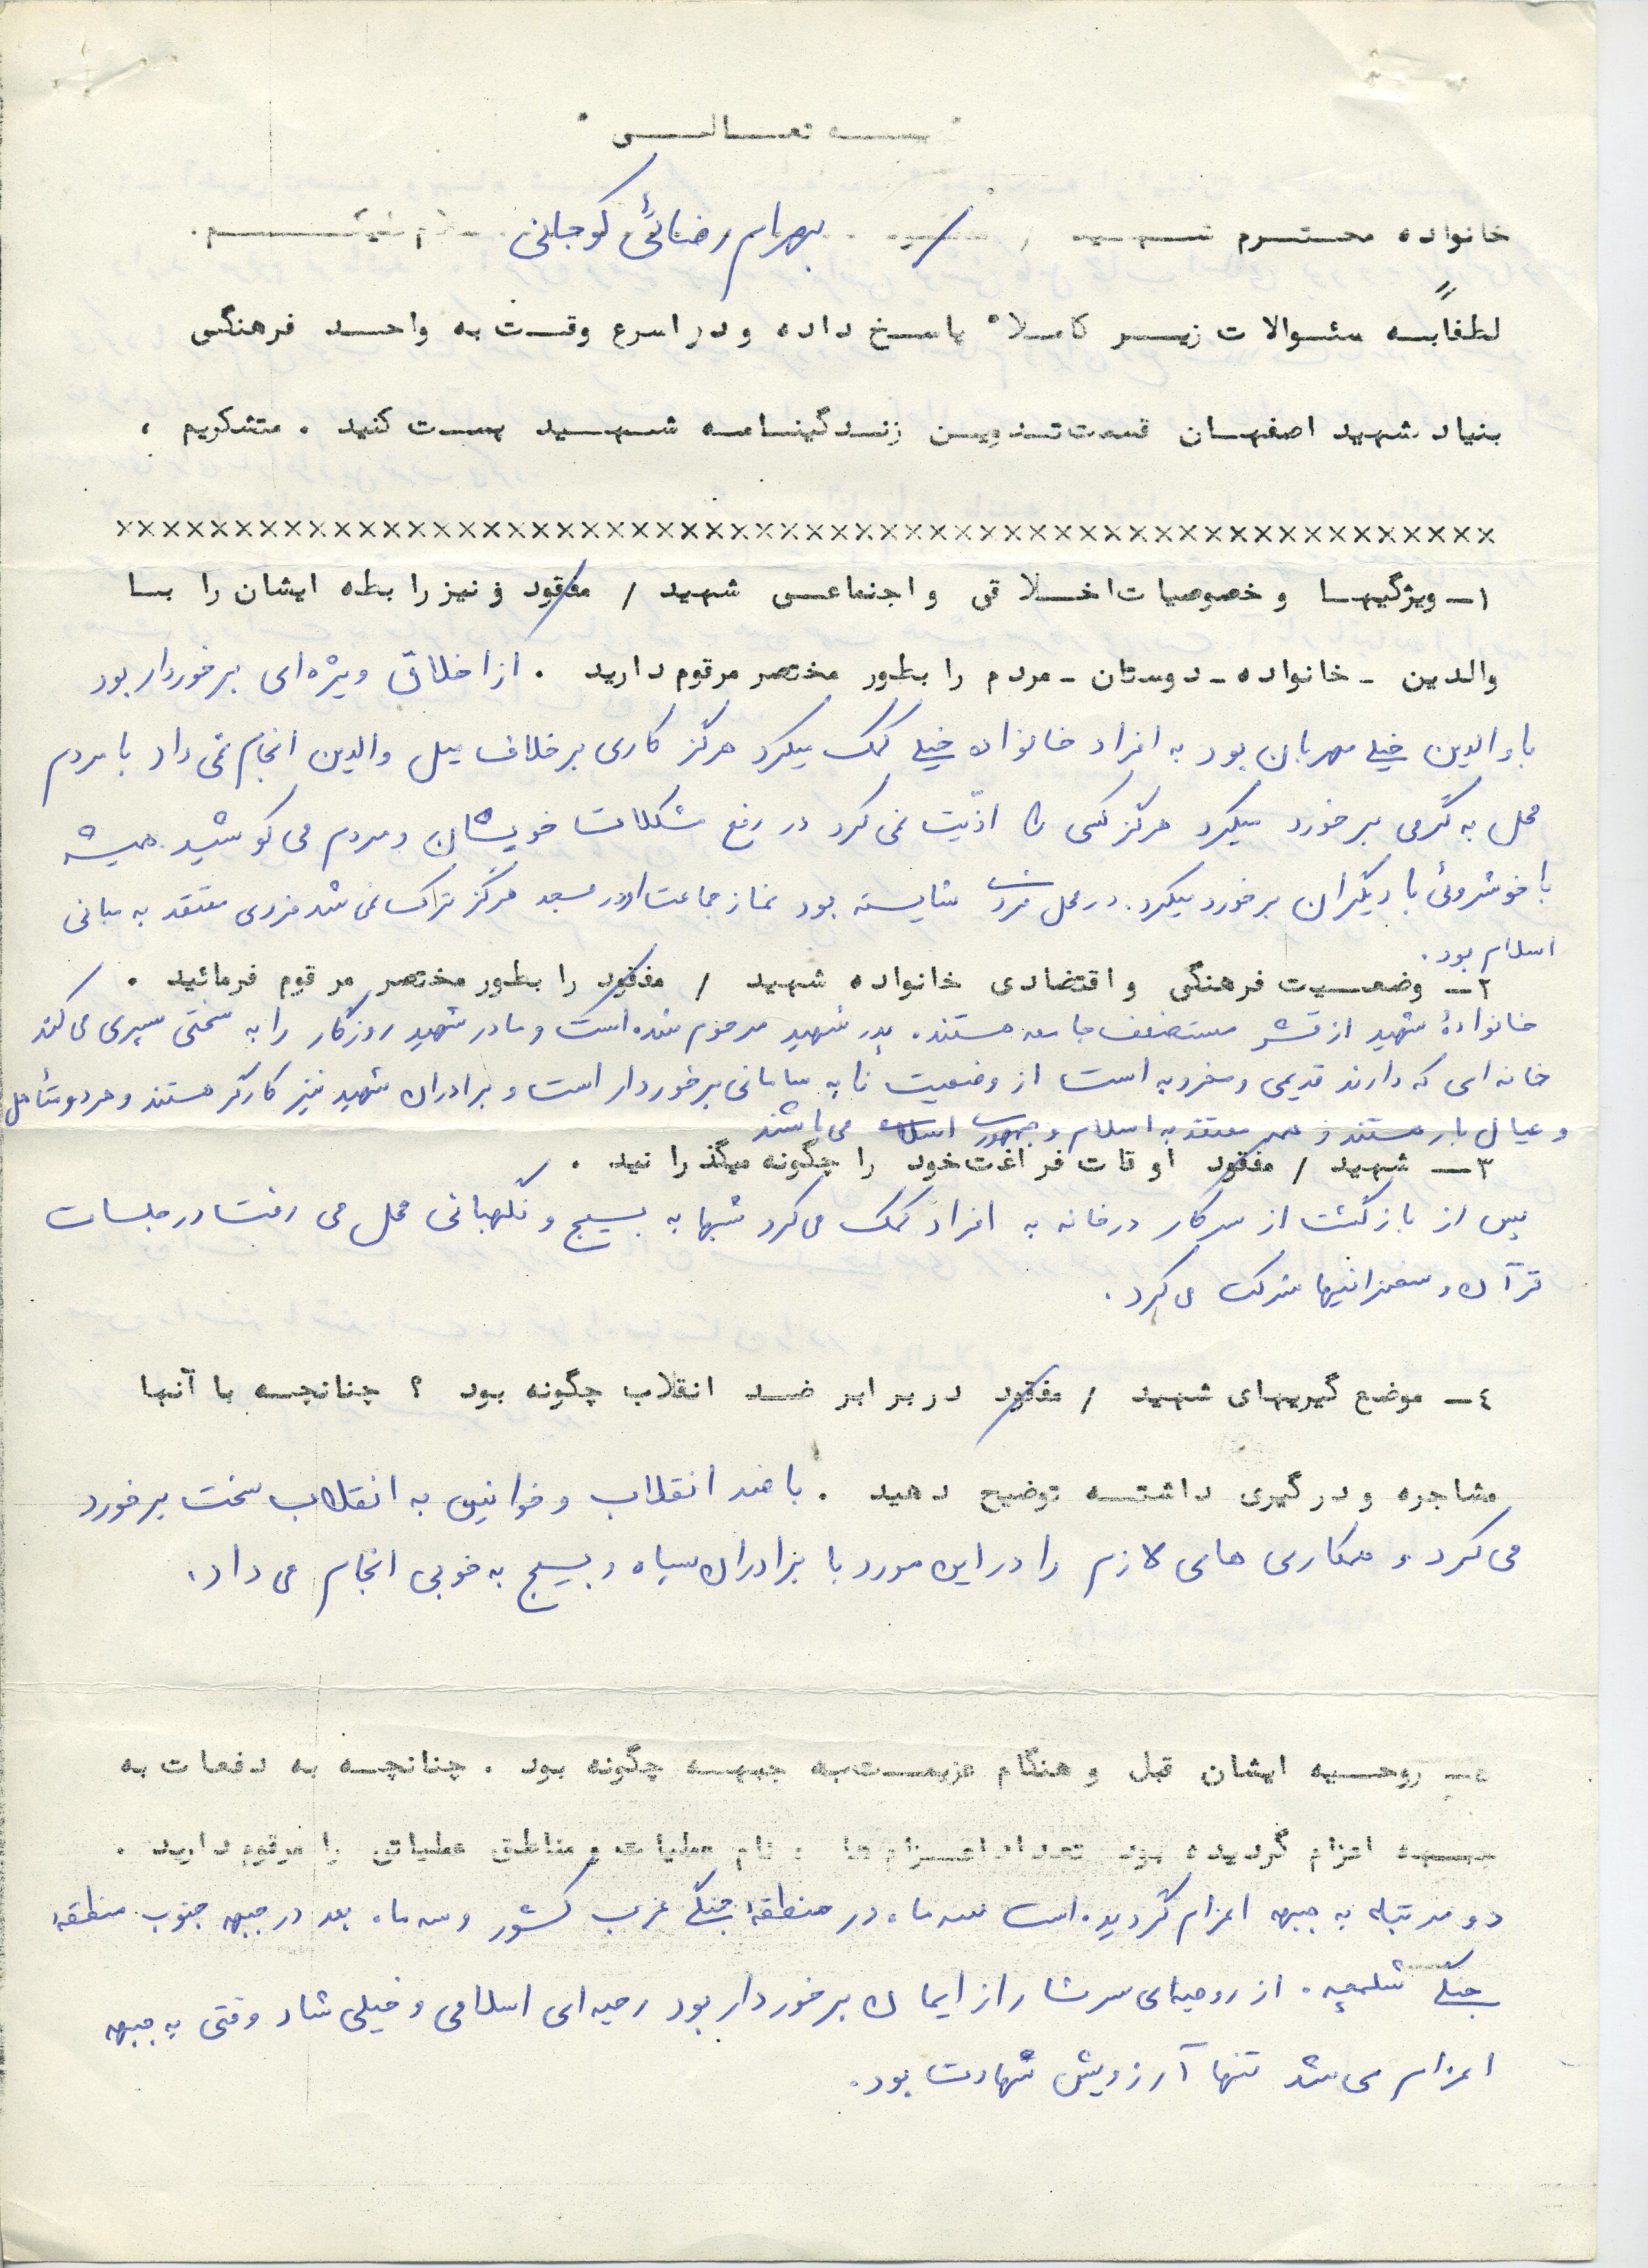 " بسمه تعالی "
خانواده محترم شهید / بهرام رضائی کوجانی
لطفاً به سئوالات زیر کاملاً پاسخ داده و در اسرع وقت به واحد فرهنگی
بنیاد شهید اصفهان قسمت تدوین زندگینامه شهید پست کنید . متشکریم ،
××××××××××××××××××××××××××××××××××××××××××××××××××××××××
۱ـ ویژگیها و خصوصیات اخلاقی و اجتماعی شهید / مفقود و نیز رابطه ایشان را با
والدین ـ خانواده ـ دوستان ـ مردم را بطور مختصر مرقوم دارید . از اخلاق ویژه‌ای برخوردار بود
با والدین خیلی مهربان بود به افراد خانواده خیلی کمک میکرد هرگز کاری برخلاف میل والدین انجام نمی داد با مردم
محل به گرمی برخورد میکرد هرگز کسی را اذیّت نمی کرد در رفع مشکلات خویشان و مردم می کوشید. همیشه
با خوشروئی با دیگران برخورد میکرد. در محل فردی شایسته بود نماز جماعت او در مسجد هرگز ترک نمی شد فردی معتقد به مبانی
اسلام بود .
۲ـ وضعیت فرهنگی و اقتضادی خانواده شهید / مفقود را بطور مختصر مرقوم فرمائید .
خانوادهٔ شهید از قشر مستضعف جامعه هستند. پدر شهید مرحوم شده است و مادر شهید روزگار را به سختی سپری می کند
خانه ای که دارند قدیمی و مخروبه است از وضعیت نابه سامانی برخوردار است و برادران شهید نیز کارگر هستند و هر دو متأهل
و عیال بار هستند و همه معتقد به اسلام و جمهوری اسلامی می باشند
۳ـ شهید / مفقود اوقات فراغت خود را چگونه میگذرانید .
پس از بازگشت از سر کار در خانه به افراد کمک می کرد شبها به بسیج و نگهبانی محل می رفت در جلسات
قرآن و سخنرانیها شرکت می کرد .
٤ـ موضع گیریهای شهید / مفقود در برابر ضد انقلاب چگونه بود ؟ چنانچه با آنها
مشاجره و درگیری داشته توضیح دهید . با ضد انقلاب و خوانین به انقلاب سخت برخورد
می کرد و همکاری های لازم را در این مورد با برادران سپاه و بسیج به خوبی انجام می داد.
٥ـ روحیه ایشان قبل و هنگام عزیمت به جبهه چگونه بود . چنانچه به دفعات به
جبهه اعزام گردیده بود تعداد اعزام ها ، نام عملیات و مناطق عملیاتی را مرقوم دارید .
دو مرتبه به جبهه اعزام گردیده است سه ماه در منطقهٔ جنگی غرب کشور و سه ماه بعد در جبهه جنوب منطقهٔ
جنگی شلمچه . از روحیه‌ای سرشار از ایمان برخوردار بود رحیه ای اسلامی و خیلی شاد وقتی به جبهه
اعزام می شد تنها آرزویش شهادت بود.